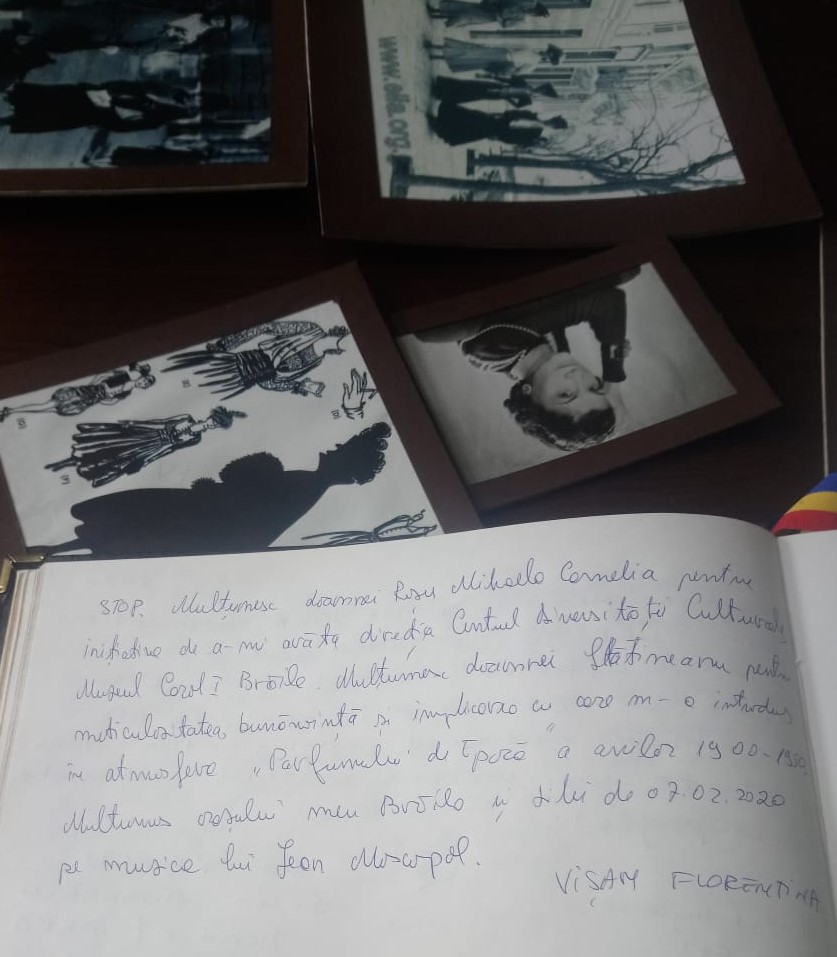 www.efia.org
STOP. Mulțumesc doamnei Roșu Mihaela Cornelia pentru
inițiativa de a-mi arăta direcția Centrul Diversității Culturale,
Muzeul Carol I Brăila. Mulțumesc doamnei Slătineanu pentru
meticulozitatea, bunăvoință și implicarea cu care m-a introdus
în atmosfera „Parfumului de Epocă" a anilor 1900-1950.
Mulțumesc orașului meu Brăila și zilei de 07.02.2020
pe muzica lui Jean Moscopol.
VIȘAN FLORENTINA